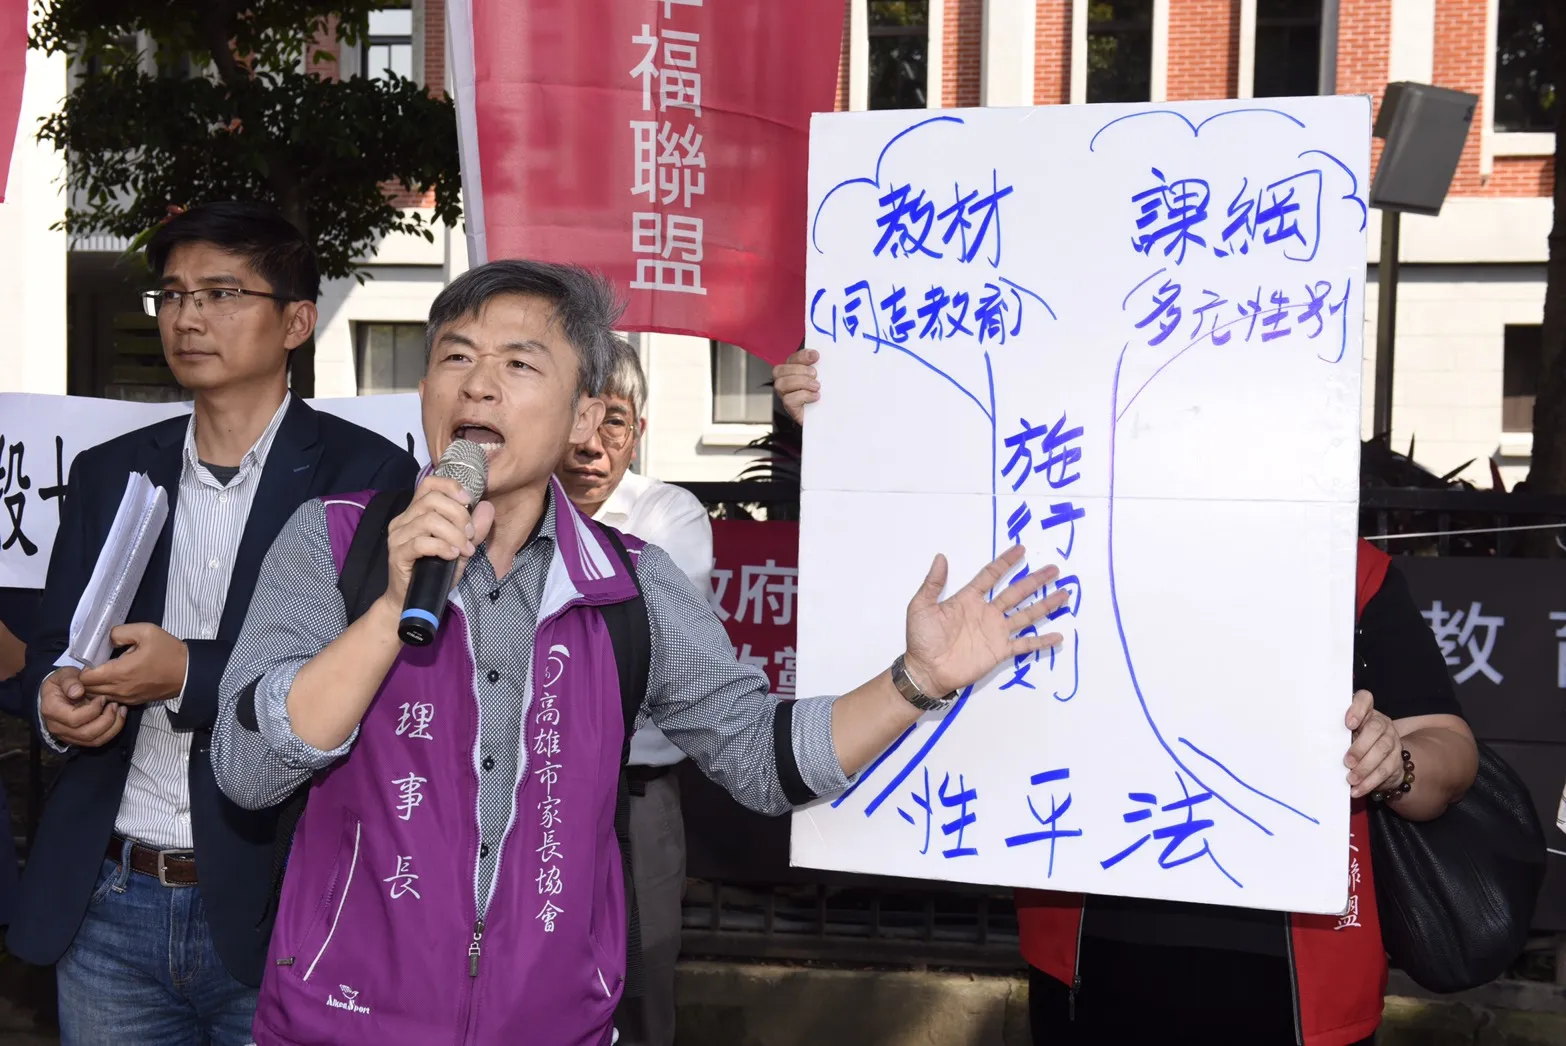 福聯盟
教材
(同志教育)
課綱
多元性別
施行細則
性平法
理事長
高雄市家長協會
政府
教育
聯盟